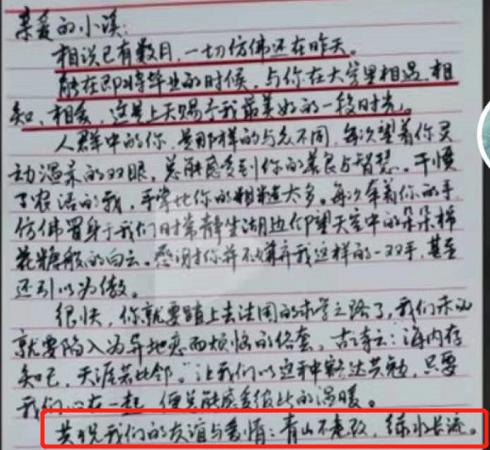 亲爱的小溪：
相识已有数月，一切仿佛还在昨天。
能在即将毕业的时候，与你在大学里相遇，相
知，相爱，这是上天赐予我最美好的一段时光。
人群中的你，是那样的与众不同，每次望着你灵
动温柔的双眼，总能感受到你的善良与智慧。干惯
了农活的我，手掌比你的粗糙太多。每次拿着你的手
仿佛置身于我们时常静坐湖边仰望天空中的朵朵棉
花糖般的白云。感谢你并不嫌弃我这样的一双手，甚至
还引以为傲。
很快，你就要踏上去法国的求学之路了，我们未必
就要陷入为异地恋而烦恼的俗套。古诗云：海内存
知己，天涯若比邻。让我们以这种豁达共勉，只要
我们心在一起，便总能感受彼此的温暖。
共祝我们的友谊与爱情：青山不老，绿水长流。